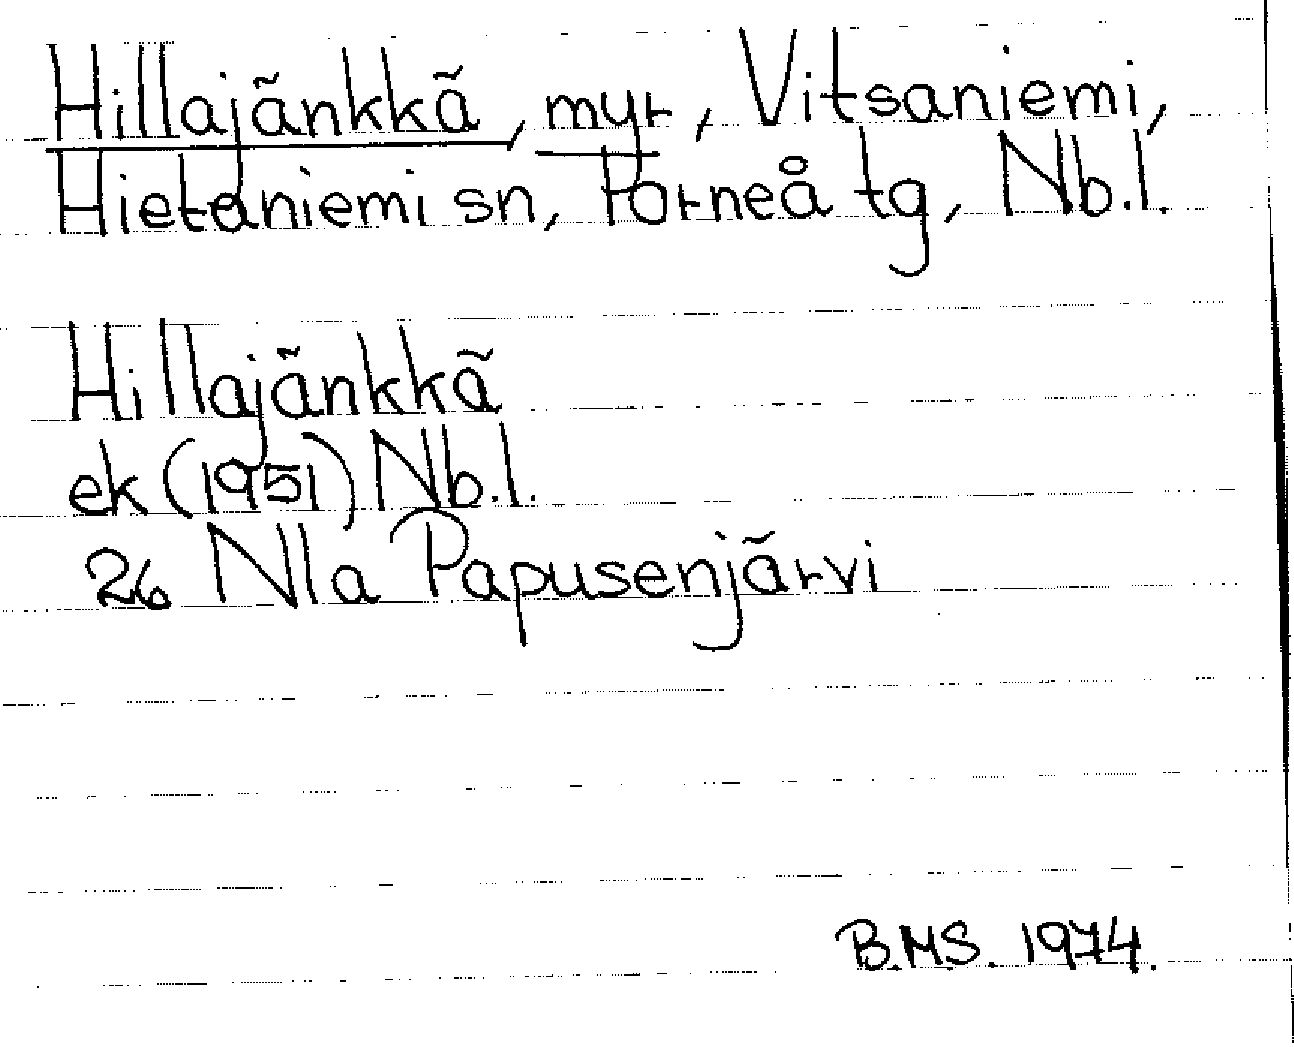 Hillajänkkä, myr, Vitsaniemi,
Hietaniemi sn, Torneå tg, Nb.l.
Hillajänkkä
ek (1951) Nb.l.
26 Nla Papusenjärvi
B.M.S. 1974.